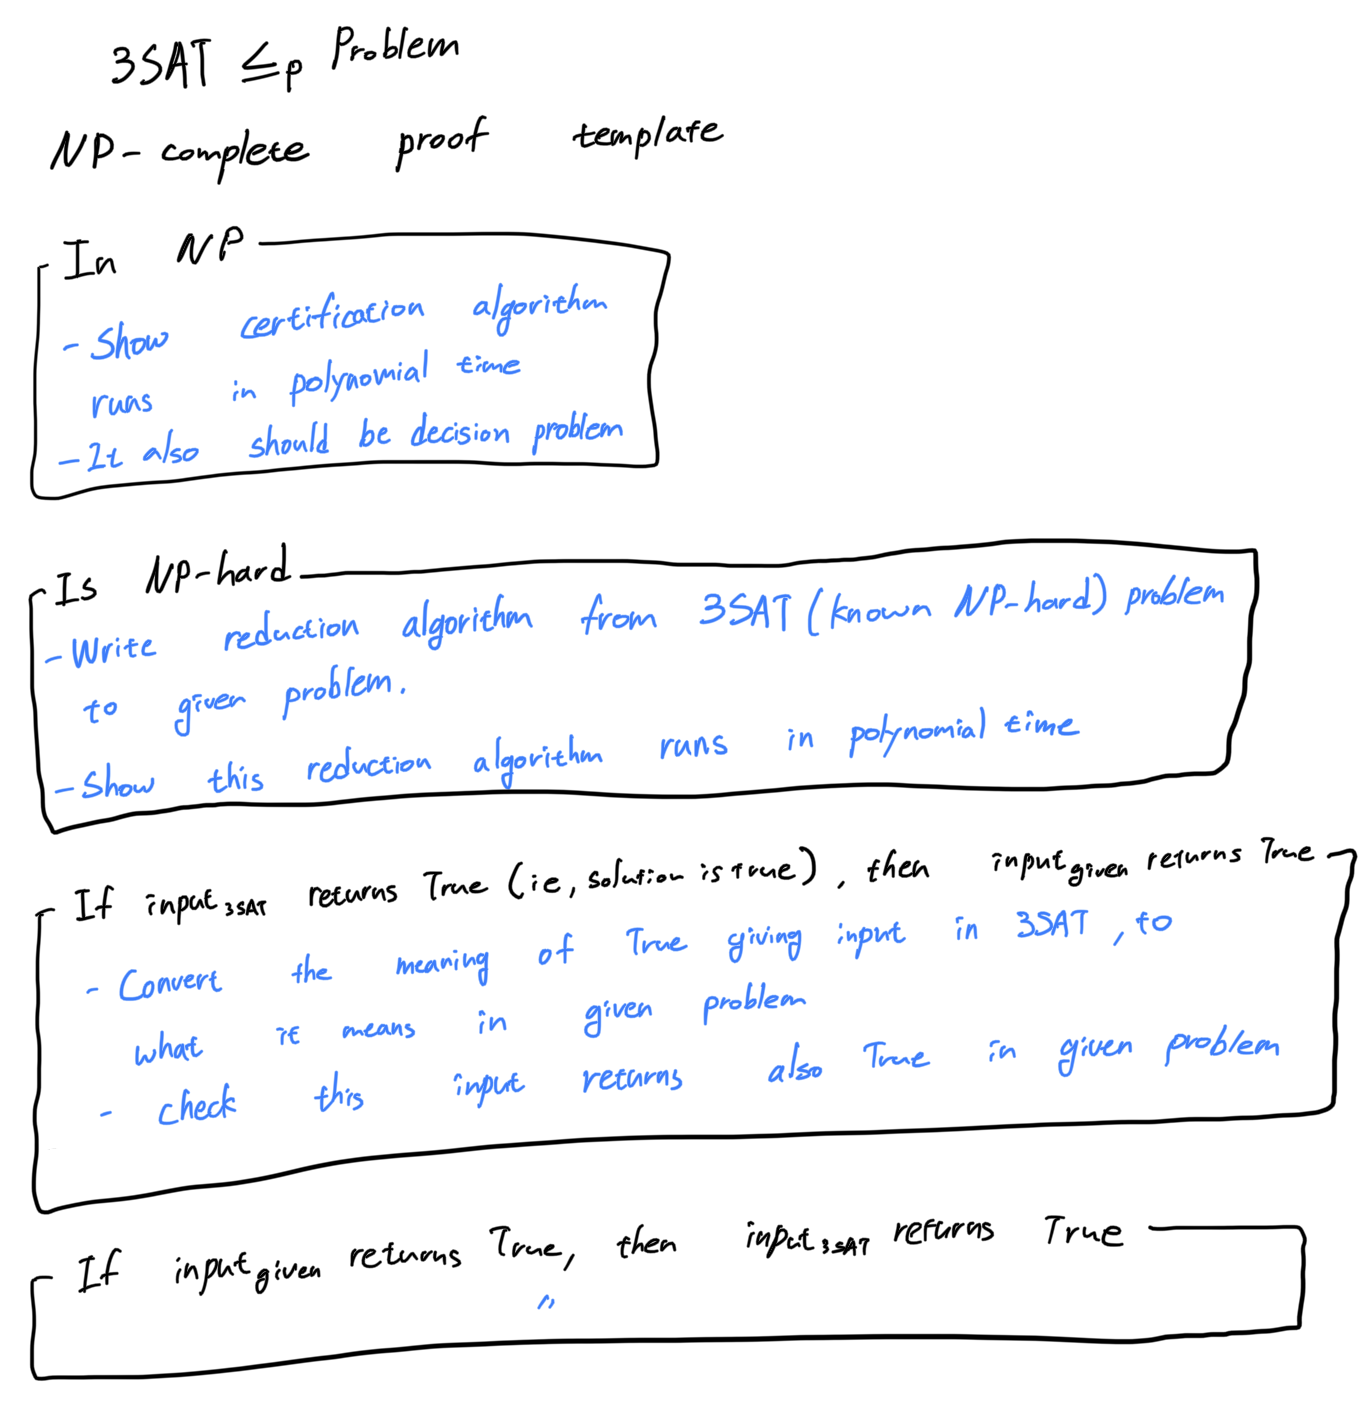 3SAT ≤p Problem
NP-complete proof template
In NP
- Show certification algorithm
runs in polynomial time
- It also should be decision problem
Is NP-hard
- Write reduction algorithm from 3SAT (known NP-hard) problem
to given problem.
- Show this reduction algorithm runs in polynomial time
If input3SAT returns True (ie, solution is true), then inputgiven returns True
- Convert the meaning of True giving input in 3SAT, to
what it means in given problem
- check this input returns also True in given problem
If inputgiven returns True, then input3SAT returns True
"